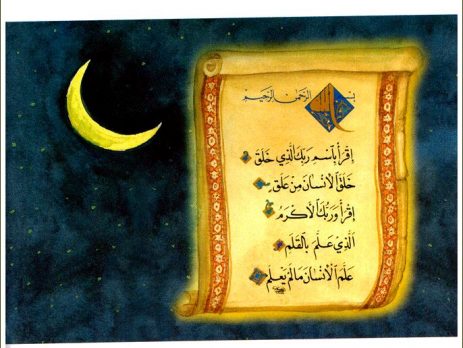 بسم الله الرحمن الرحيم
إقرأ باسم ربك الذي خلق
خلق الإنسان من علق
إقرأ وربك الأكرم
الذي علم بالقلم
علم الإنسان مالم يعلم